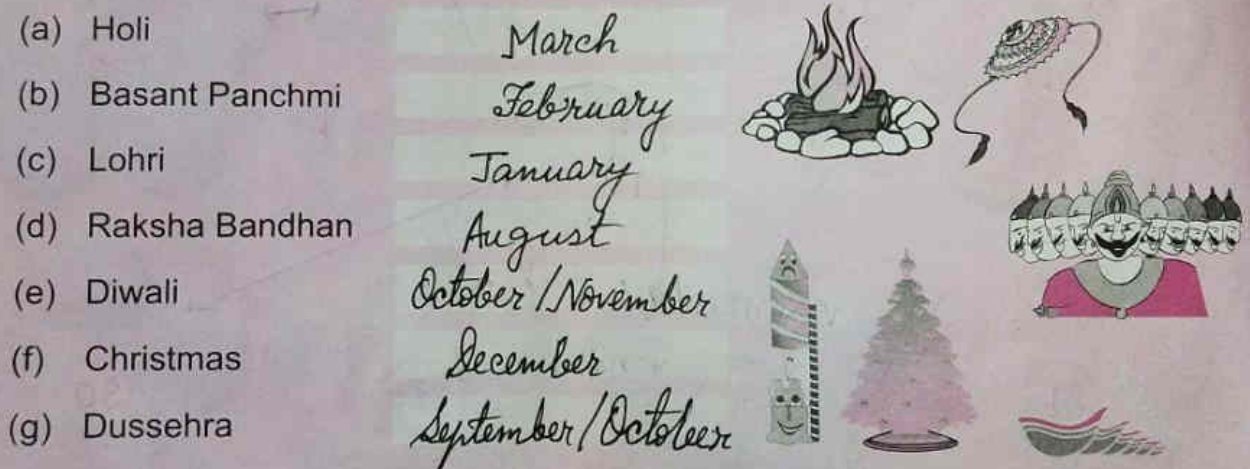 (a) Holi March
(b) Basant Panchmi February
(c) Lohri January
(d) Raksha Bandhan August
(e) Diwali October / November
(f) Christmas December
(g) Dussehra September / October